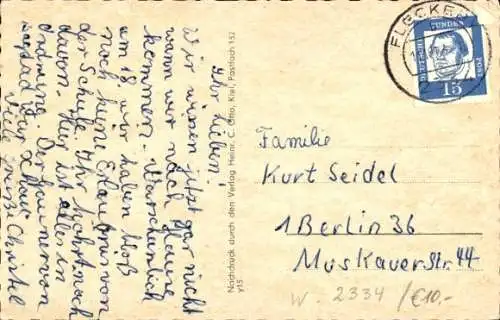 Ihr Lieben!
Wir wissen jetzt gar nicht
wann wir nach Hause
kommen. Warscheinlich
am 18. wir haben bloß
noch keine Erlaubnis von
der Schule. Ihr hört noch
davon. Hier ist alles in
Ordnung. Der
Viele Grüße Christel
Nachdruck durch den Verlag Heinr. C. Otto, Kiel, Postfach 152
FLECKEBY
TUNDEN
POST
15
Familie
Kurt Seidel
1 Berlin 36
Muskauer Str. 44
W. 2334 /€10.-